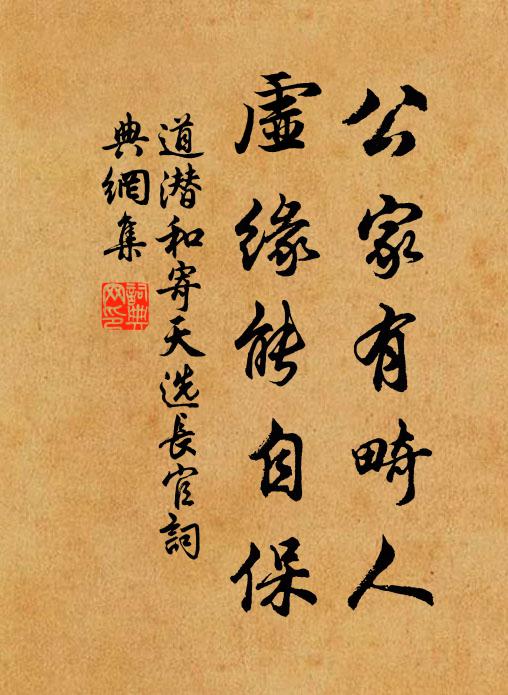 公家有畸人
虛緣能自保
道潛和寄天选長官詞
典網集
詞典
网印